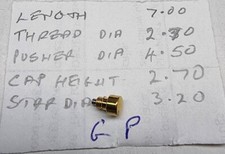 LENGTH 7.00
THREAD DIA 2.30
PUSHER DIA 4.50
CAP HEIGHT 2.70
STAR DIA 3.20
G P